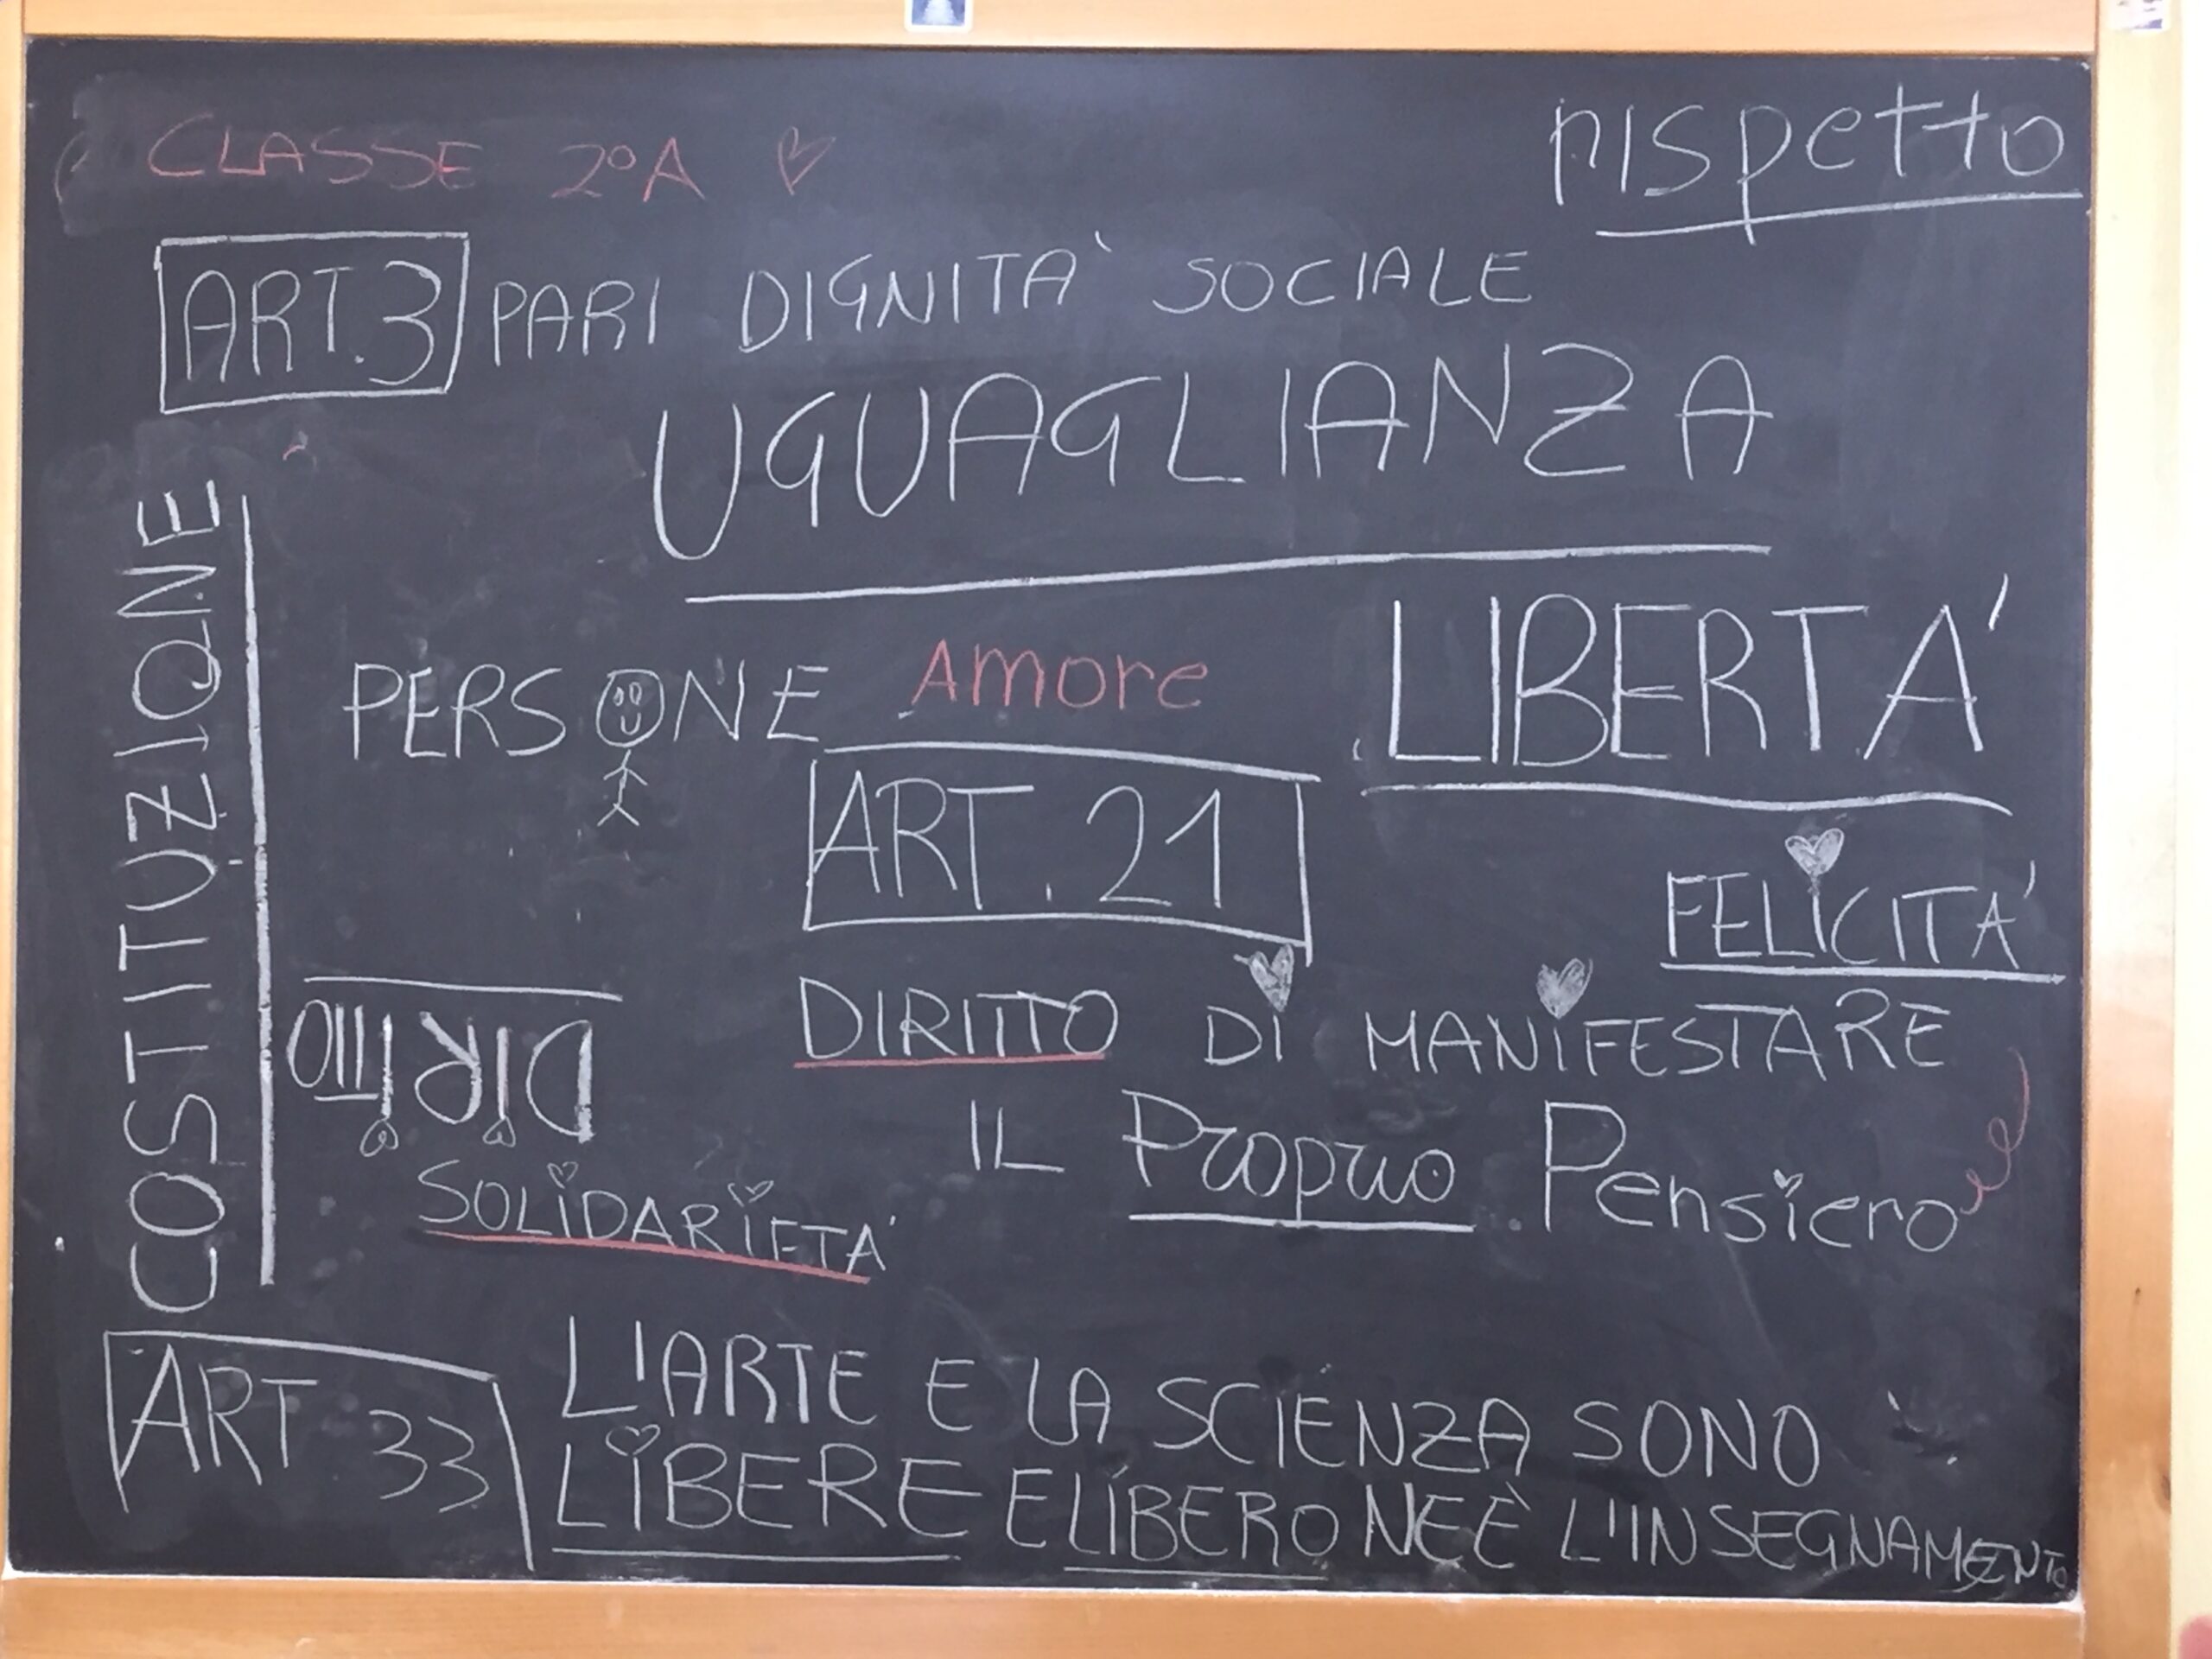 CLASSE 2°A
rispetto
ART.3 PARI DIGNITA' SOCIALE
UGUAGLIANZA
COSTITUZIONE
PERSONE
Amore
LIBERTA'
ART. 21
FELICITA'
DIRITTO DI MANIFESTARE
IL Proprio Pensiero
DIRITTO
SOLIDARIETA'
ART 33
L'ARTE E LA SCIENZA SONO
LIBERE E LIBERO NE È L'INSEGNAMENTO